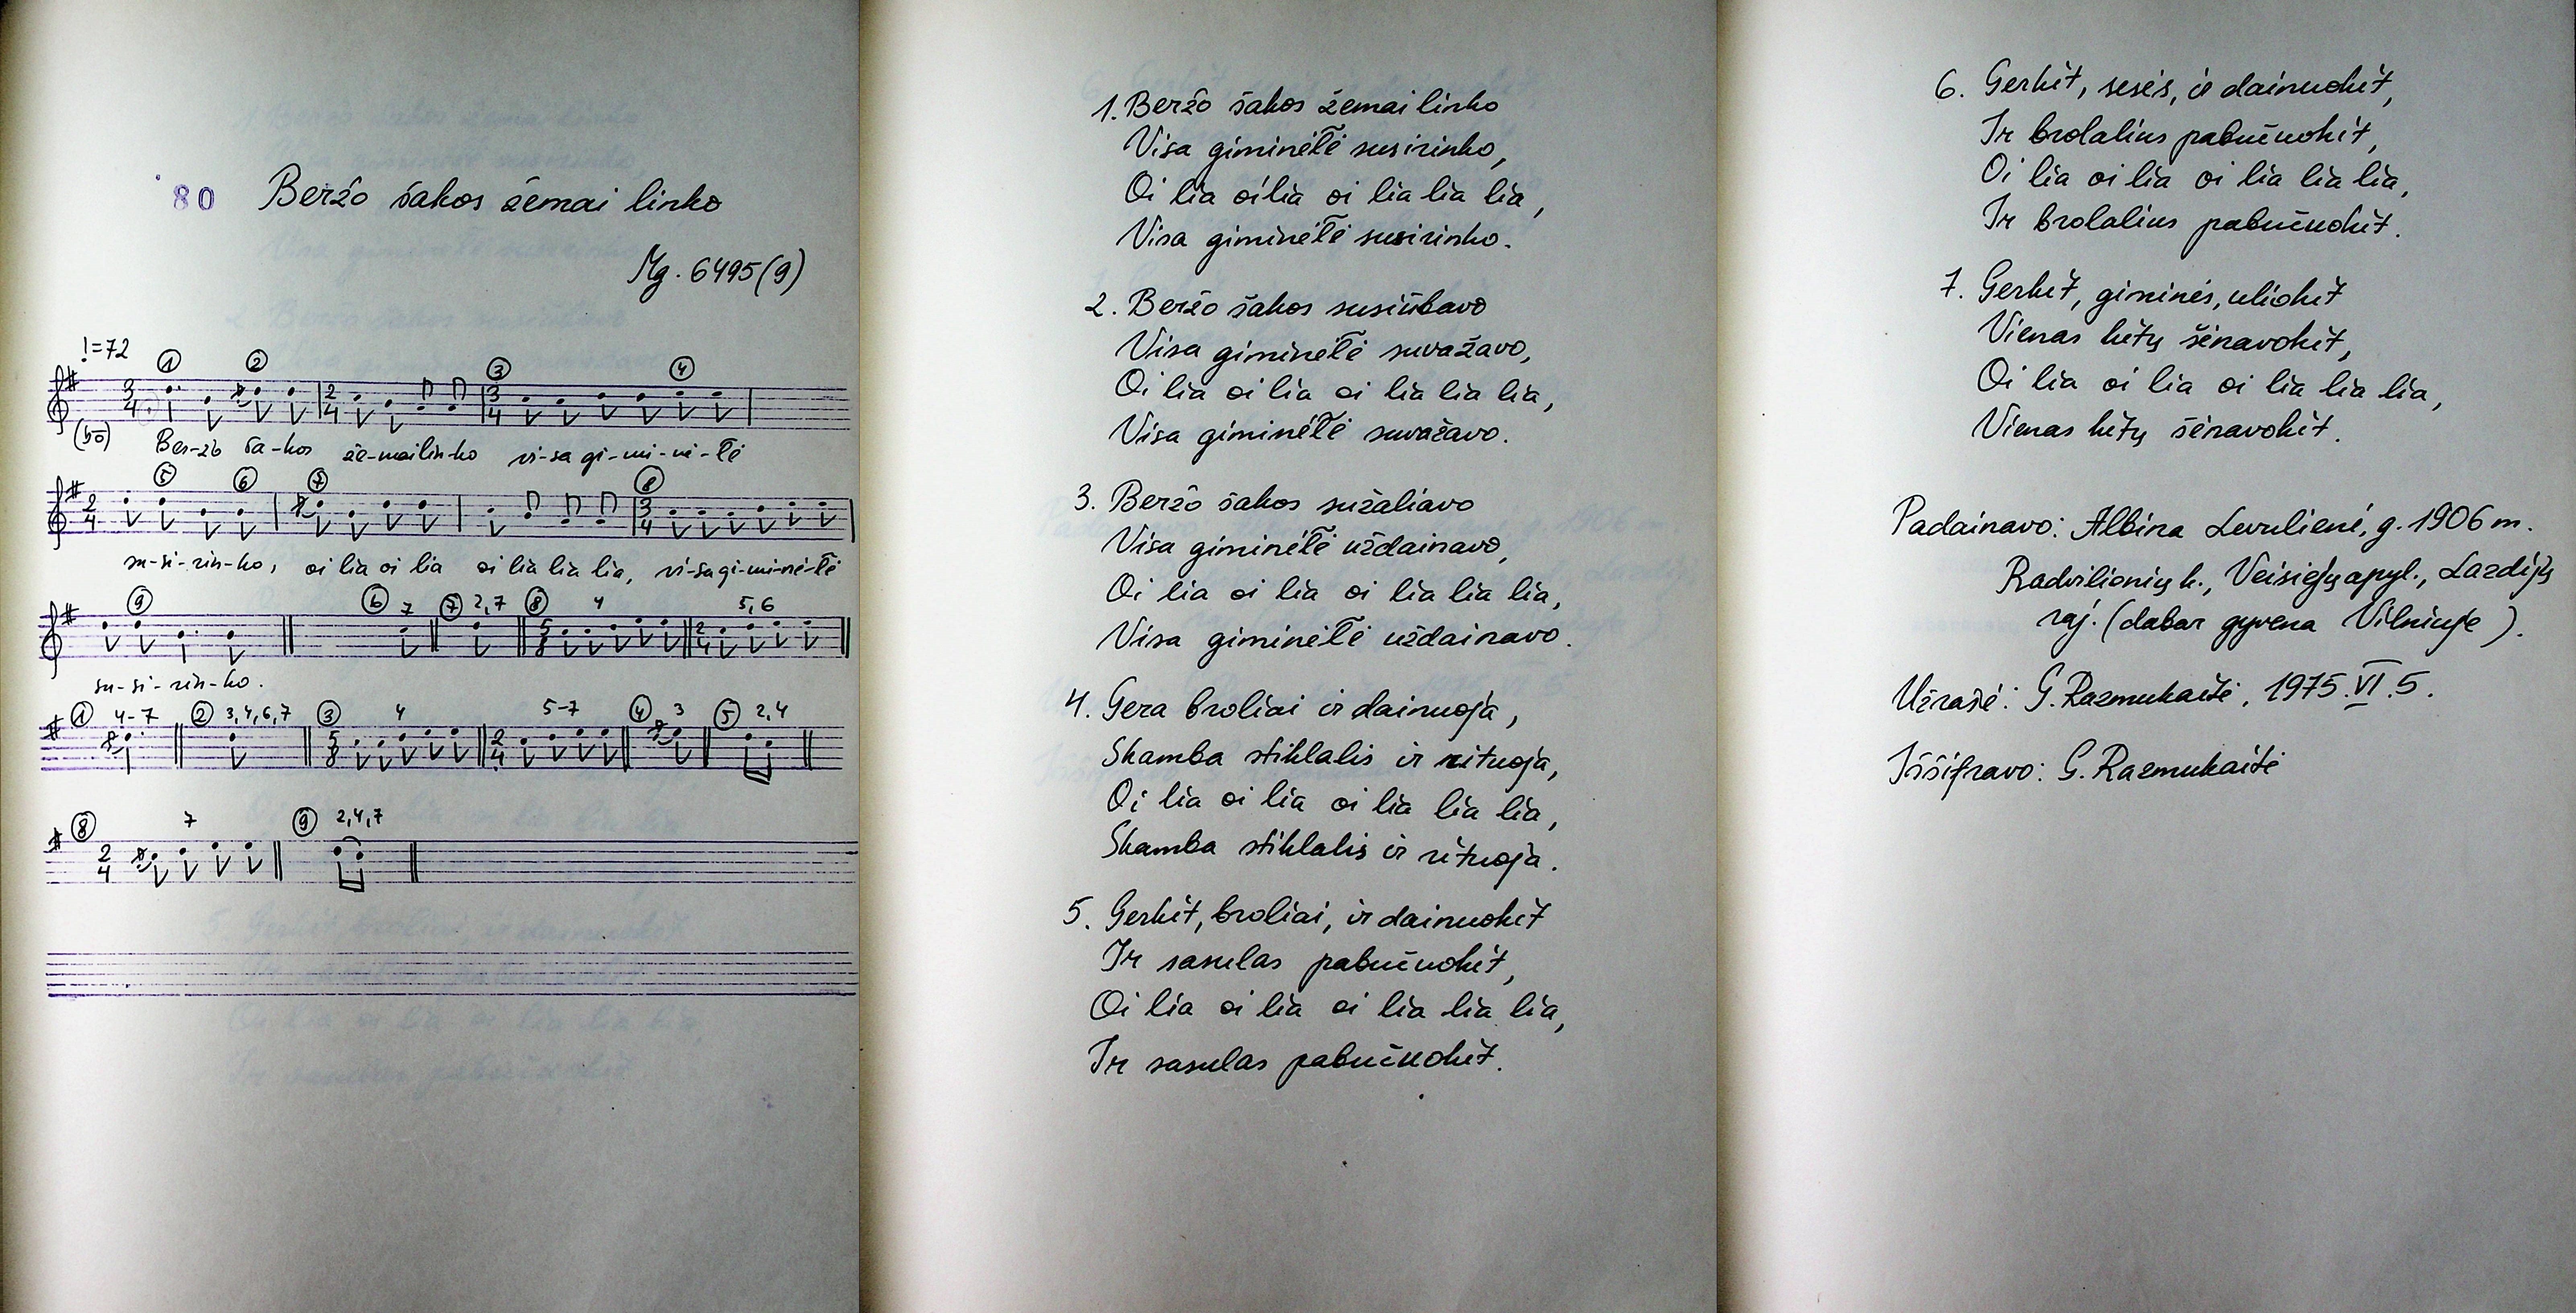 80 Beržo šakos žemai linko
Mg. 6495(9)
♩=72
① ② ③ ④
3/4 2/4 3/4
Ber-žo ša-kos že-mai lin-ko vi-sa gi-mi-nė-lė
⑤ ⑥ ⑦ ⑧
2/4 3/4
su-si-rin-ko, oi lia oi lia oi lia lia lia, vi-sa gi-mi-nė-lė
⑨ ⑥ 7 ⑦ 2,7 ⑧ 4 5,6
5/8 2/4
su-si-rin-ko.
① 4-7 ② 3,4,6,7 ③ 4 5-7 ④ 3 ⑤ 2,4
5/8 2/4
⑧ 7 ⑨ 2,4,7
2/4
1. Beržo šakos žemai linko
Visa giminėlė susirinko,
Oi lia oi lia oi lia lia lia,
Visa giminėlė susirinko.
2. Beržo šakos susiūbavo
Visa giminėlė suvažavo,
Oi lia oi lia oi lia lia lia,
Visa giminėlė suvažavo.
3. Beržo šakos sužaliavo
Visa giminėlė uždainavo,
Oi lia oi lia oi lia lia lia,
Visa giminėlė uždainavo.
4. Gera broliai ir dainuoja,
Skamba stiklalis ir rituoja,
Oi lia oi lia oi lia lia lia,
Skamba stiklalis ir rituoja.
5. Gerkit, broliai, ir dainuokit
Ir sasulas pabučuokit,
Oi lia oi lia oi lia lia lia,
Ir sasulas pabučuokit.
6. Gerkit, sesės, ir dainuokit,
Ir brolalius pabučuokit,
Oi lia oi lia oi lia lia lia,
Ir brolalius pabučuokit.
7. Gerkit, giminės, uliokit
Vienas kitų šėnavokit,
Oi lia oi lia oi lia lia lia,
Vienas kitų šėnavokit.
Padainavo: Albina Levulienė, g. 1906 m.
Radvilionių k., Veisiejų apyl., Lazdijų
raj. (dabar gyvena Vilniuje).
Užrašė: G. Razmukaitė, 1975.VI.5.
Iššifravo: G. Razmukaitė